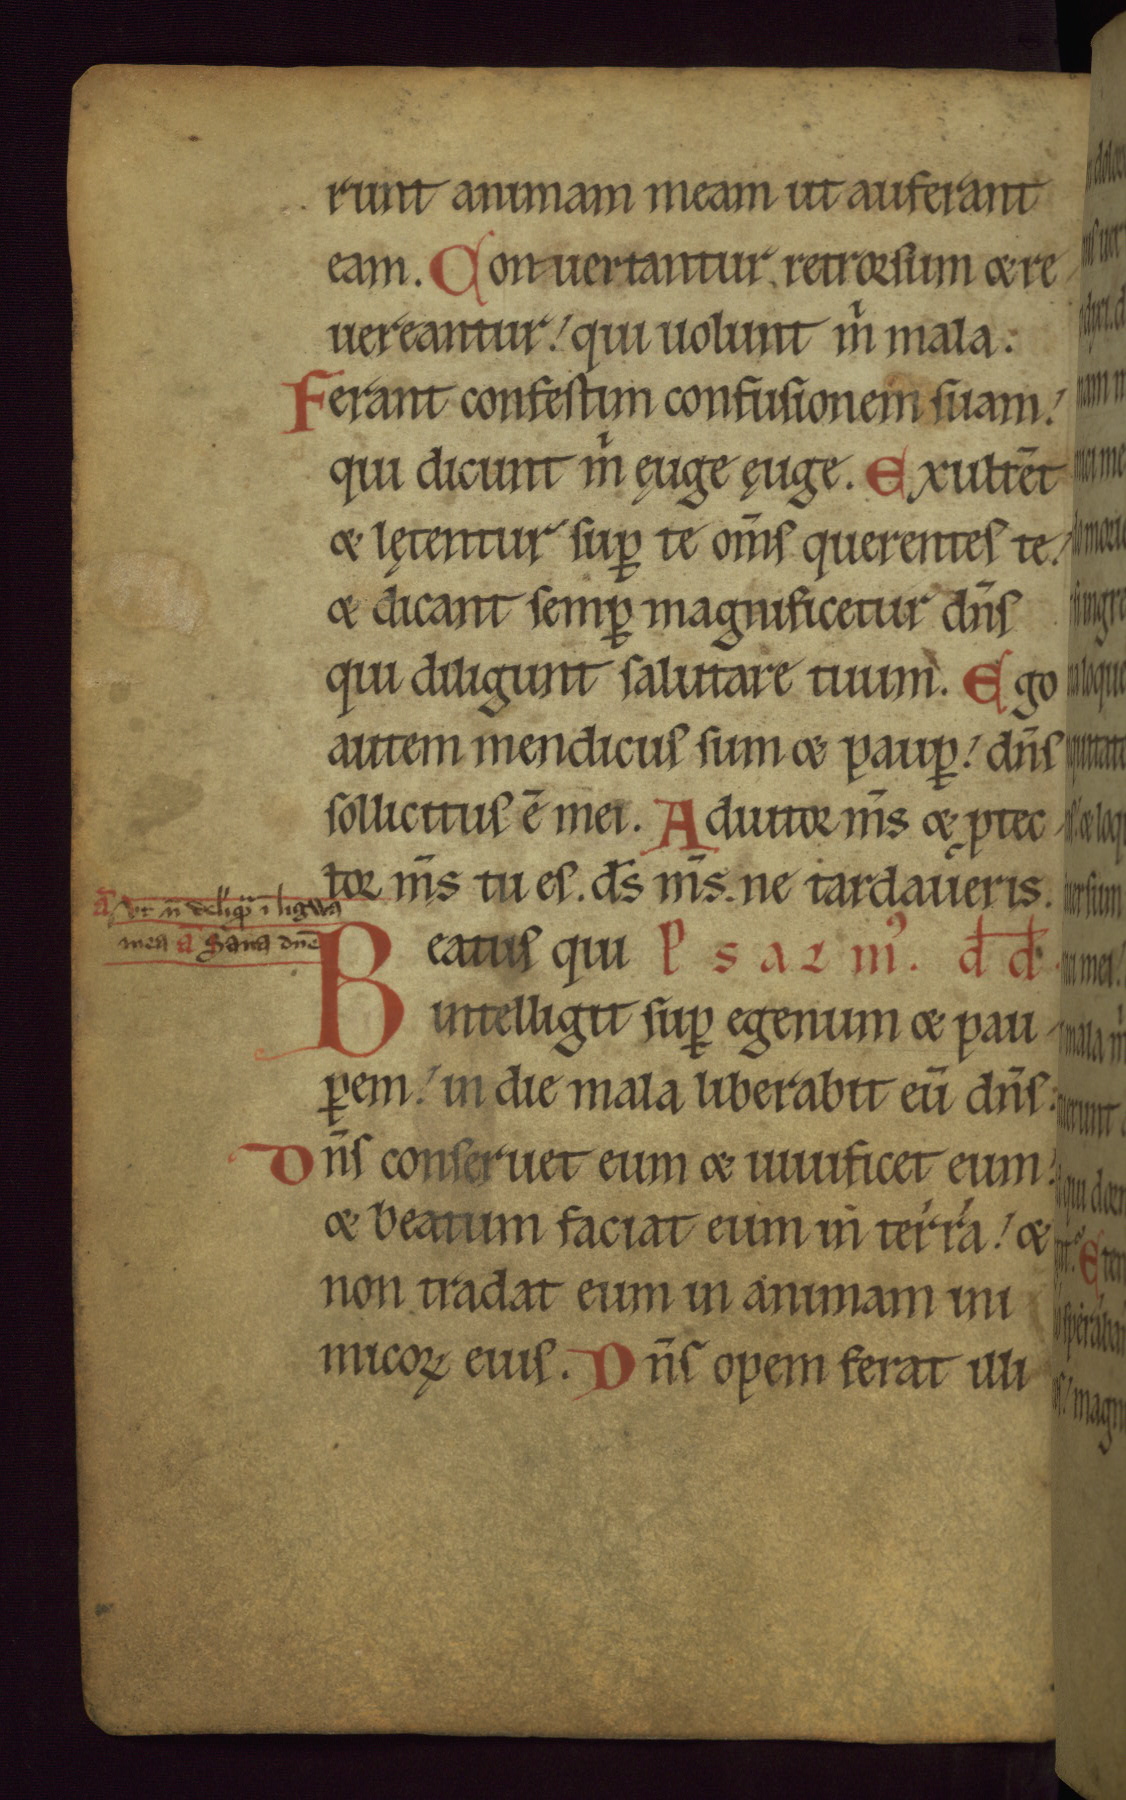 runt animam meam ut auferant
eam. Conuertantur retrorsum & re
uereantur! qui uolunt m̄ mala.
Ferant confestim confusionem suam!
qui dicunt m̄ ęuge ęuge. Exultēt
& lętentur sup̱ te om̄s querentes te!
& dicant semp̱ magnificetur dn̄s
qui diligunt salutare tuum. Ego
autem mendicus sum & paup̱! dn̄s
sollicitus ē mei. Adiutor m̄s & ꝓtec
tor m̄s tu es. ds̄ m̄s. ne tardaueris.
a͞ Vt n̄ delīq̄ i ligwa
mea a͞ Sana dn̄e
Beatus qui Psalm'. dd.
intelligit sup̱ egenum & pau
p̱em! in die mala liberabit eū dn̄s.
Dn̄s conseruet eum & uiuificet eum!
& beatum faciat eum in terra! &
non tradat eum in animam ini
micoꝝ eius. Dn̄s opem ferat illi